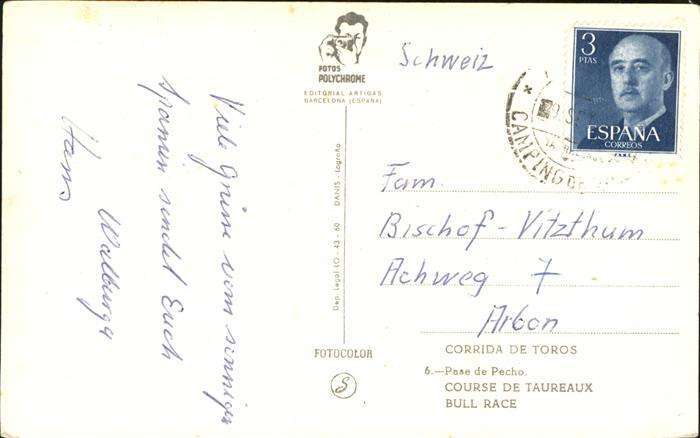 Viele Grüsse vom sonnigen
Spanien sendet Euch
Walburga
Hans
FOTOS
POLYCHROME
EDITORIAL ARTIGAS
BARCELONA (ESPAÑA)
Dep. Legal LO - 43 - 60 DANIS - Logroño
FOTOCOLOR
S
Schweiz
3
PTAS
ESPAÑA
CORREOS
CAMPING DE
Fam.
Bischof - Vitzthum
Achweg 7
Arbon
CORRIDA DE TOROS
6.—Pase de Pecho.
COURSE DE TAUREAUX
BULL RACE